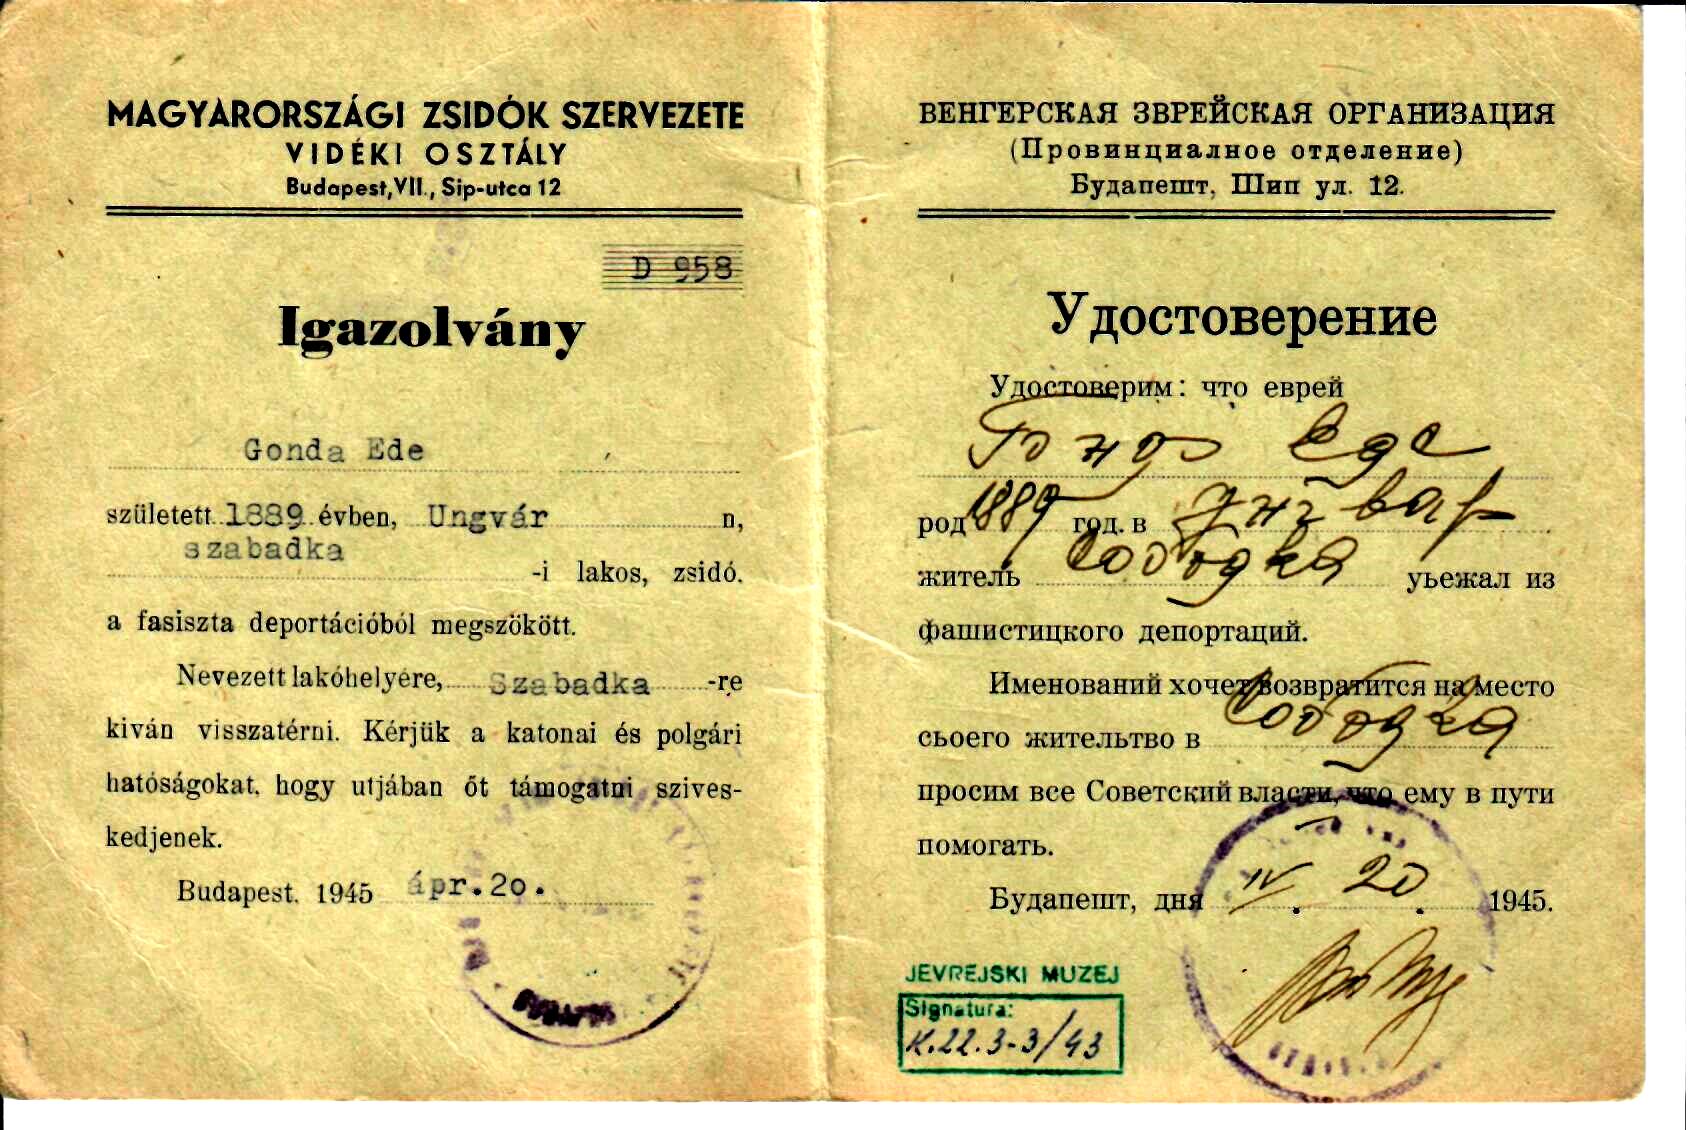 MAGYARORSZÁGI ZSIDÓK SZERVEZETE
VIDÉKI OSZTÁLY
Budapest, VII., Sip-utca 12
D 958
Igazolvány
Gonda Ede
született 1889 évben, Ungvár n,
szabadka
-i lakos, zsidó.
a fasiszta deportációból megszökött.
Nevezett lakóhelyére, Szabadka -re
kiván visszatérni. Kérjük a katonai és polgári
hatóságokat, hogy utjában őt támogatni szives-
kedjenek.
Budapest, 1945 ápr.20.
BUDAPEST
ВЕНГЕРСКАЯ ЗВРЕЙСКАЯ ОРГАНИЗАЦИЯ
(Провинциалное отделение)
Будапешт, Шип ул. 12.
Удостоверение
Удостоверим: что еврей
Гонда Еде
род 1889 год. в Унгвар
житель Сободка уьежал из
фашистицкого депортаций.
Именований хочет возвратится на место
сьоего жительтво в Сободка
просим все Советский власти, что ему в пути
помогать.
Будапешт, дня IV. 20. 1945.
JEVREJSKI MUZEJ
Signatura:
K.22.3-3/43